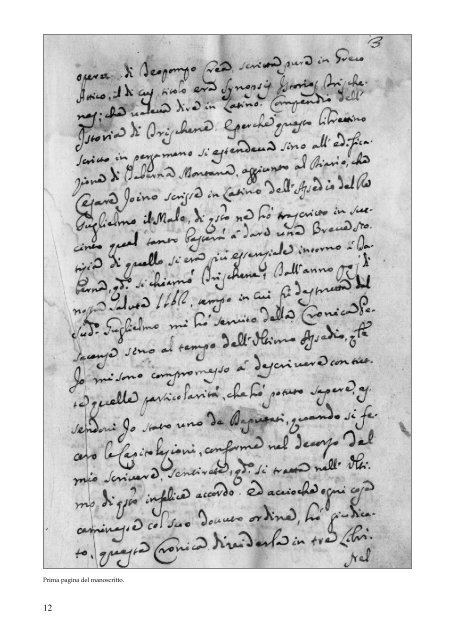 3
opera di Teopompo Crea scritta pure in Greco
Attico, il di cui titolo era Synopsis Istorias Brische-
nes; che valeva dire in Latino. Compendio dell'
Istoria di Brischene. E perche questo librettino
scritto in pergameno si estendeva sino all'edifica-
zione di Taberna Montana, aggiunto al Diario, che
Cesare Joino scrisse in Latino dell'Assedio del Re
Guglielmo il Malo, di qsto ne hò trascritto in suc-
cinto qual tanto basterà à dare una Breve sto-
ria di quello si era più essenziale intorno à Ta-
berna, qdo si chiamò Brischene; Dall'anno poi di
nostra salute 1161, tempo in cui fù destrutta dal
sudo Guglielmo mi hò servito della Cronica
sino al tempo dell'Ultimo Assedio,
Io mi sono compromesso à descrivere con tut-
te quelle particolarità, che hò potuto sapere, es-
sendovi Io stato uno de Deputati, quando si fe-
cero le Capitolazioni, conforme nel decorso del
mio scrivere, sentirete, qdo si tratta nell'Ulti-
mo di qsto infelice accordo. Ed acciochè ogni cosa
caminasse col suo dovuto ordine, hò giudica-
to, questa Cronica dividerla in tre Libri.
Nel
Prima pagina del manoscritto.
12